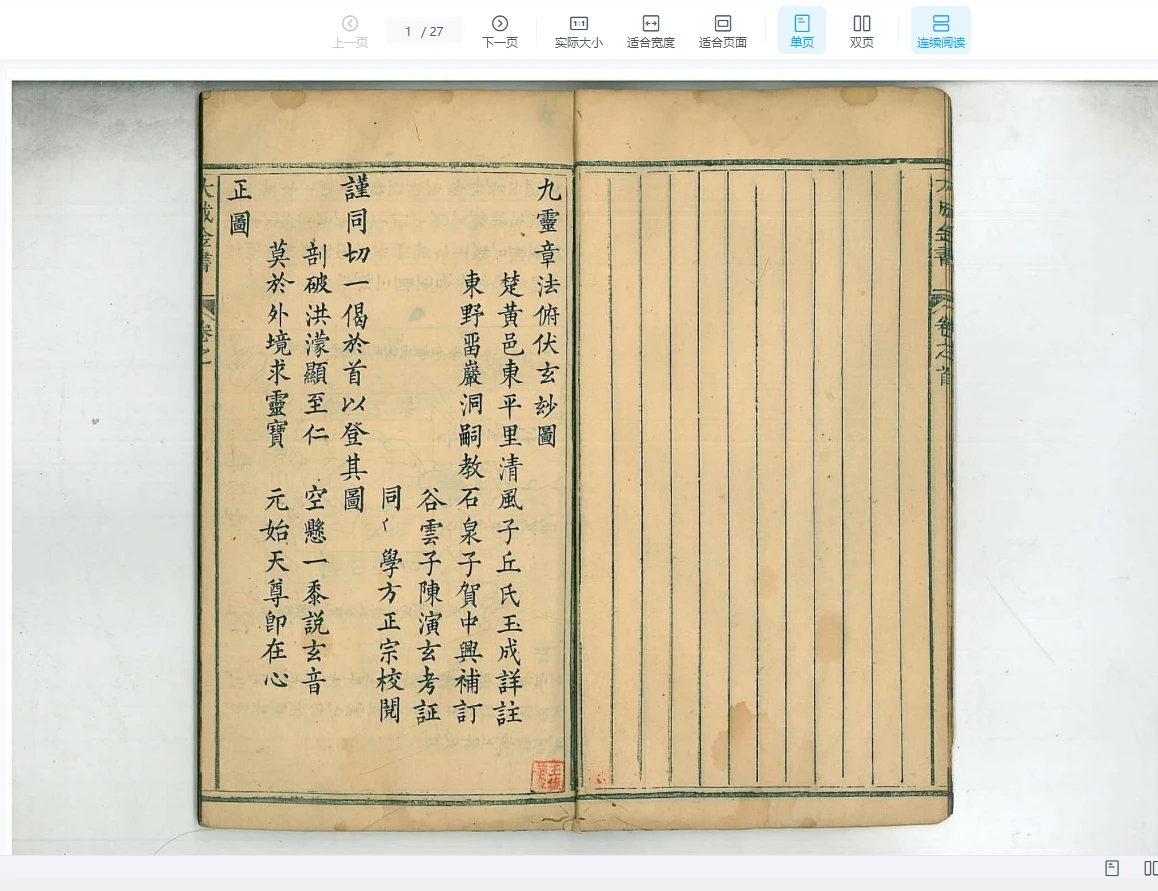 上一页
1 / 27
下一页
1:1
实际大小
适合宽度
适合页面
单页
双页
连续阅读
九靈章法俯伏玄玅圖
楚黃邑東平里清風子丘氏玉成詳註
東野畱巖洞嗣教石泉子賀中興補訂
谷雲子陳演玄考証
同 學方正宗校閱
謹同切一偈於首以登其圖
剖破洪濛顯至仁 空懸一黍説玄音
莫於外境求靈寶 元始天尊卽在心
正圖
大成金書
卷之首